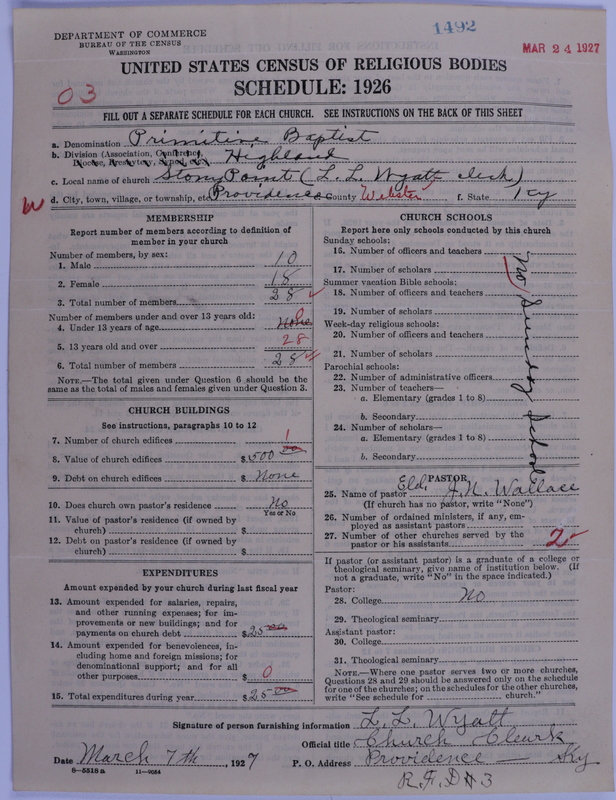 1492
DEPARTMENT OF COMMERCE
BUREAU OF THE CENSUS
WASHINGTON
MAR 24 1927
UNITED STATES CENSUS OF RELIGIOUS BODIES
SCHEDULE: 1926
03
FILL OUT A SEPARATE SCHEDULE FOR EACH CHURCH. SEE INSTRUCTIONS ON THE BACK OF THIS SHEET
a. Denomination Primitive Baptist
b. Division (Association, Conference, Diocese, Presbytery, Synod, etc.) Highland
c. Local name of church Stony Point (L. L. Wyatt clerk)
W d. City, town, village, or township, etc. Providence County Webster f. State Ky
MEMBERSHIP
Report number of members according to definition of
member in your church
Number of members, by sex:
1. Male 10
2. Female 18
3. Total number of members 28
Number of members under and over 13 years old:
4. Under 13 years of age None 0
5. 13 years old and over 28
6. Total number of members 28
NOTE.—The total given under Question 6 should be
same as the total of males and females given under Question 3.
CHURCH BUILDINGS
See instructions, paragraphs 10 to 12
7. Number of church edifices 1
8. Value of church edifices $500 00
9. Debt on church edifices $ None
10. Does church own pastor's residence No
Yes or No
11. Value of pastor's residence (if owned by
church) $
12. Debt on pastor's residence (if owned by
church) $
EXPENDITURES
Amount expended by your church during last fiscal year
13. Amount expended for salaries, repairs,
and other running expenses; for im-
provements or new buildings; and for
payments on church debt $25 00
14. Amount expended for benevolences, in-
cluding home and foreign missions; for
denominational support; and for all
other purposes $ 0
15. Total expenditures during year $25 00
CHURCH SCHOOLS
Report here only schools conducted by this church
Sunday schools:
16. Number of officers and teachers
17. Number of scholars
Summer vacation Bible schools:
18. Number of officers and teachers
19. Number of scholars
Week-day religious schools:
20. Number of officers and teachers
21. Number of scholars
Parochial schools:
22. Number of administrative officers
23. Number of teachers—
a. Elementary (grades 1 to 8)
b. Secondary
24. Number of scholars—
a. Elementary (grades 1 to 8)
b. Secondary
No Sunday School
PASTOR
25. Name of pastor Eld. J. N. Wallace
(If church has no pastor, write "None")
26. Number of ordained ministers, if any, em-
ployed as assistant pastors
27. Number of other churches served by the
pastor or his assistants 2
If pastor (or assistant pastor) is a graduate of a college or
theological seminary, give name of institution below. (If
not a graduate, write "No" in the space indicated.)
Pastor:
28. College No
29. Theological seminary
Assistant pastor:
30. College
31. Theological seminary
NOTE.—Where one pastor serves two or more churches,
Questions 28 and 29 should be answered only on the schedule
for one of the churches; on the schedules for the other churches,
write "See schedule for church."
Signature of person furnishing information L. L. Wyatt
Official title Church Cleark
Date March 7th, 1927 P. O. Address Providence — Ky
8—5518a 11—9054
R.F.D # 3